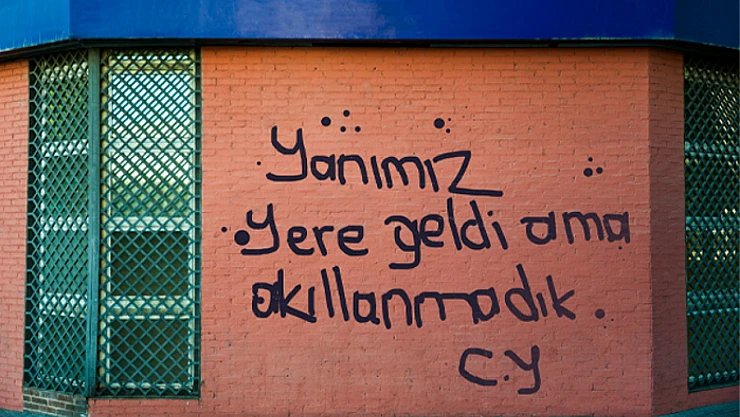 Yanımız
Yere geldi ama
akıllanmadık.
C.Y